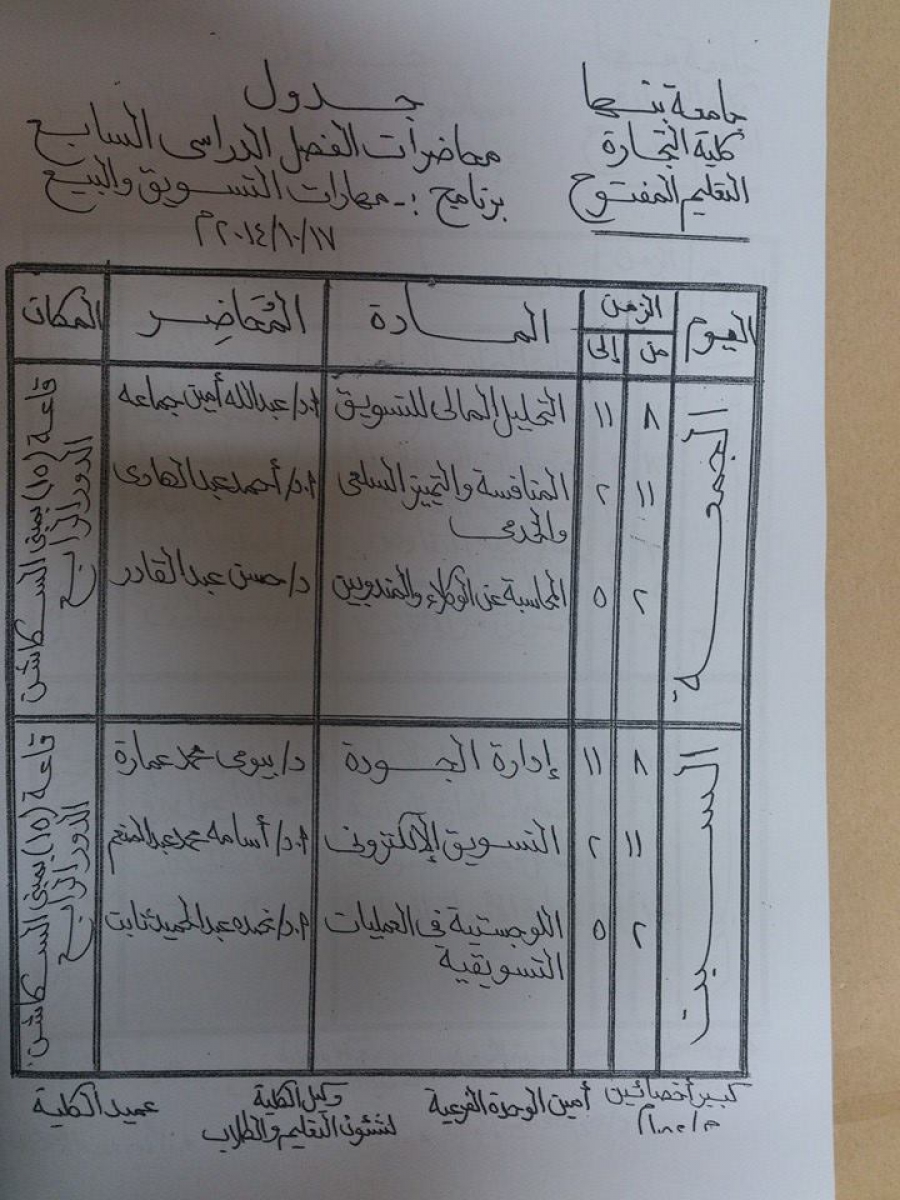 جامعة بنها
كلية التجارة
التعليم المفتوح
جدول
محاضرات الفصل الدراسى السابع
برنامج :- مهارات التسويق والبيع
٢٠١٤/١٠/١٧م
اليوم الزمن المادة المُحَاضِر المكان
من إلى
الجمعة
٨ ١١ التحليل المالى للتسويق أ.د/عبدالله أمين جماعه
١١ ٢ المنافسة والتميز السلعى أ.د/أحمد عبدالهادى
والخدمى
٢ ٥ المحاسبة عن الوكلاء والمندوبين د/حسن عبدالقادر
قاعة (١٥) بمبنى السكاشن
الدور الرابع
السبت
٨ ١١ إدارة الجودة د/بيومى محمد عمارة
١١ ٢ التسويق الإلكترونى أ.د/أسامه محمد عبدالمنعم
٢ ٥ اللوجستية فى العمليات عبدالحميد ثابت
التسويقية
قاعة (١٥) بمبنى السكاشن
الدور الرابع
كبير أخصائين أمين الوحدة الفرعية وكيل الكلية عميد الكلية
لشئون التعليم والطلاب